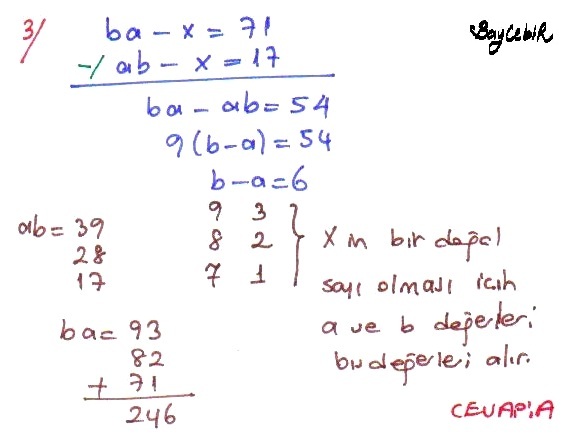 3/ ba - x = 71
BayCebiR
-/ ab - x = 17
ba - ab = 54
9(b-a) = 54
b-a = 6
ab = 39
28
17
9 3
8 2
7 1
X in bir doğal
sayı olması için
a ve b değerleri
bu değerleri alır.
ba = 93
82
+ 71
246
CEVAP: A